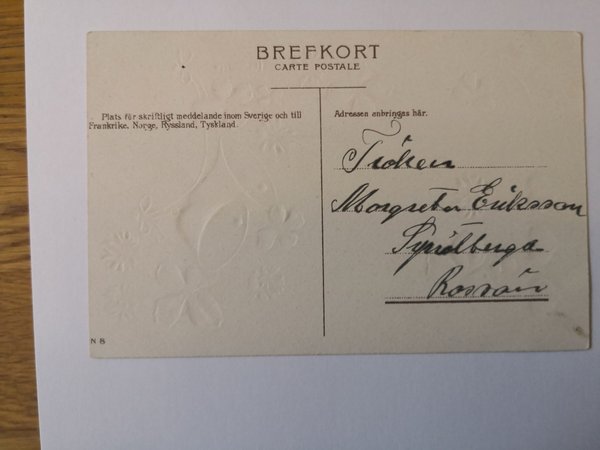 BREFKORT
CARTE POSTALE
Plats för skriftligt meddelande inom Sverige och till
Frankrike, Norge, Ryssland, Tyskland.
Adressen anbringas här.
Fröken
Margreta Eriksson
N 8